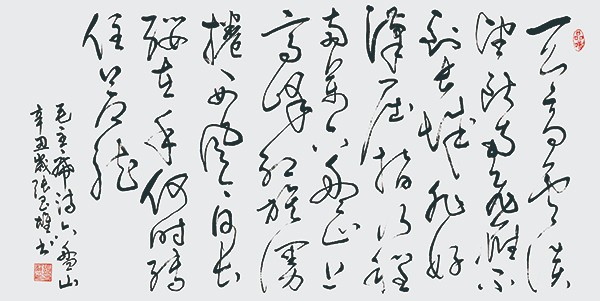 天高雲淡
望断南飛雁不
到长城非好
漢屈指行程
萬六盘山上
高峰红旗漫
捲西风今日长
缨在手何时缚
住苍龙
毛主席诗六盘山
辛丑岁张玉雄书